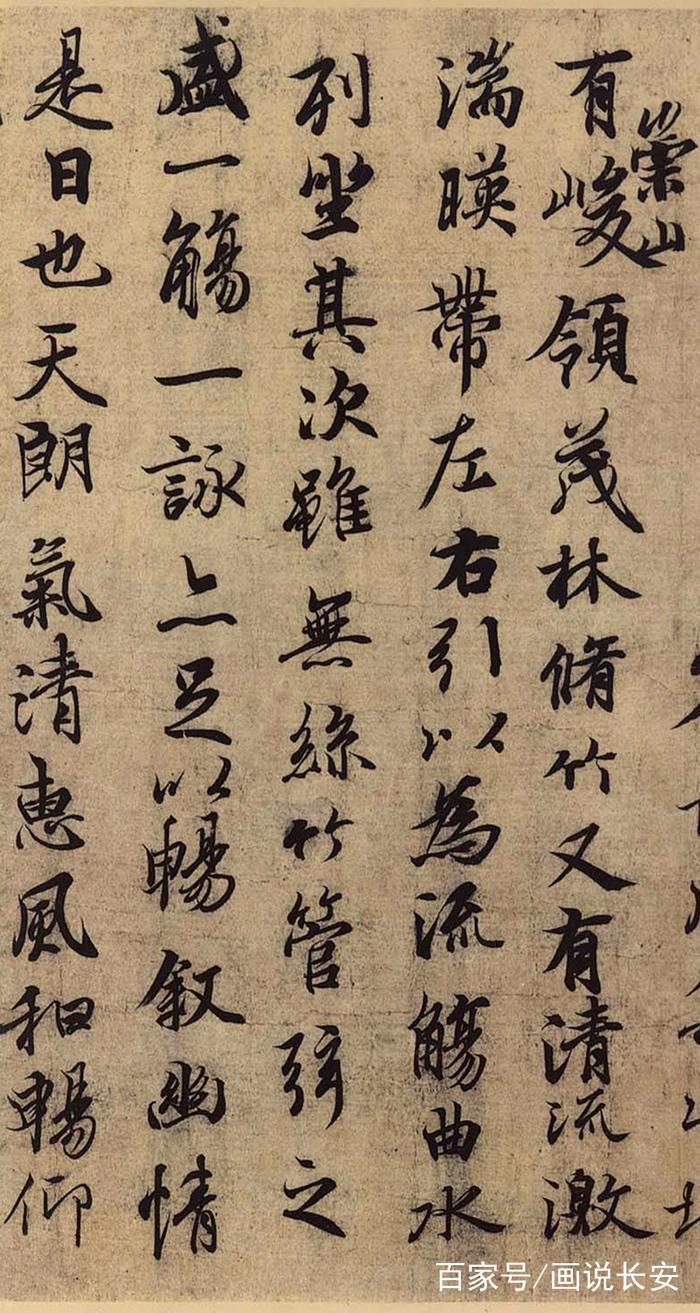 崇山
有峻領茂林脩竹又有清流激
湍暎帶左右引以為流觴曲水
列坐其次雖無絲竹管弦之
盛一觴一詠亦足以暢叙幽情
是日也天朗氣清惠風和暢仰
百家号/画说长安